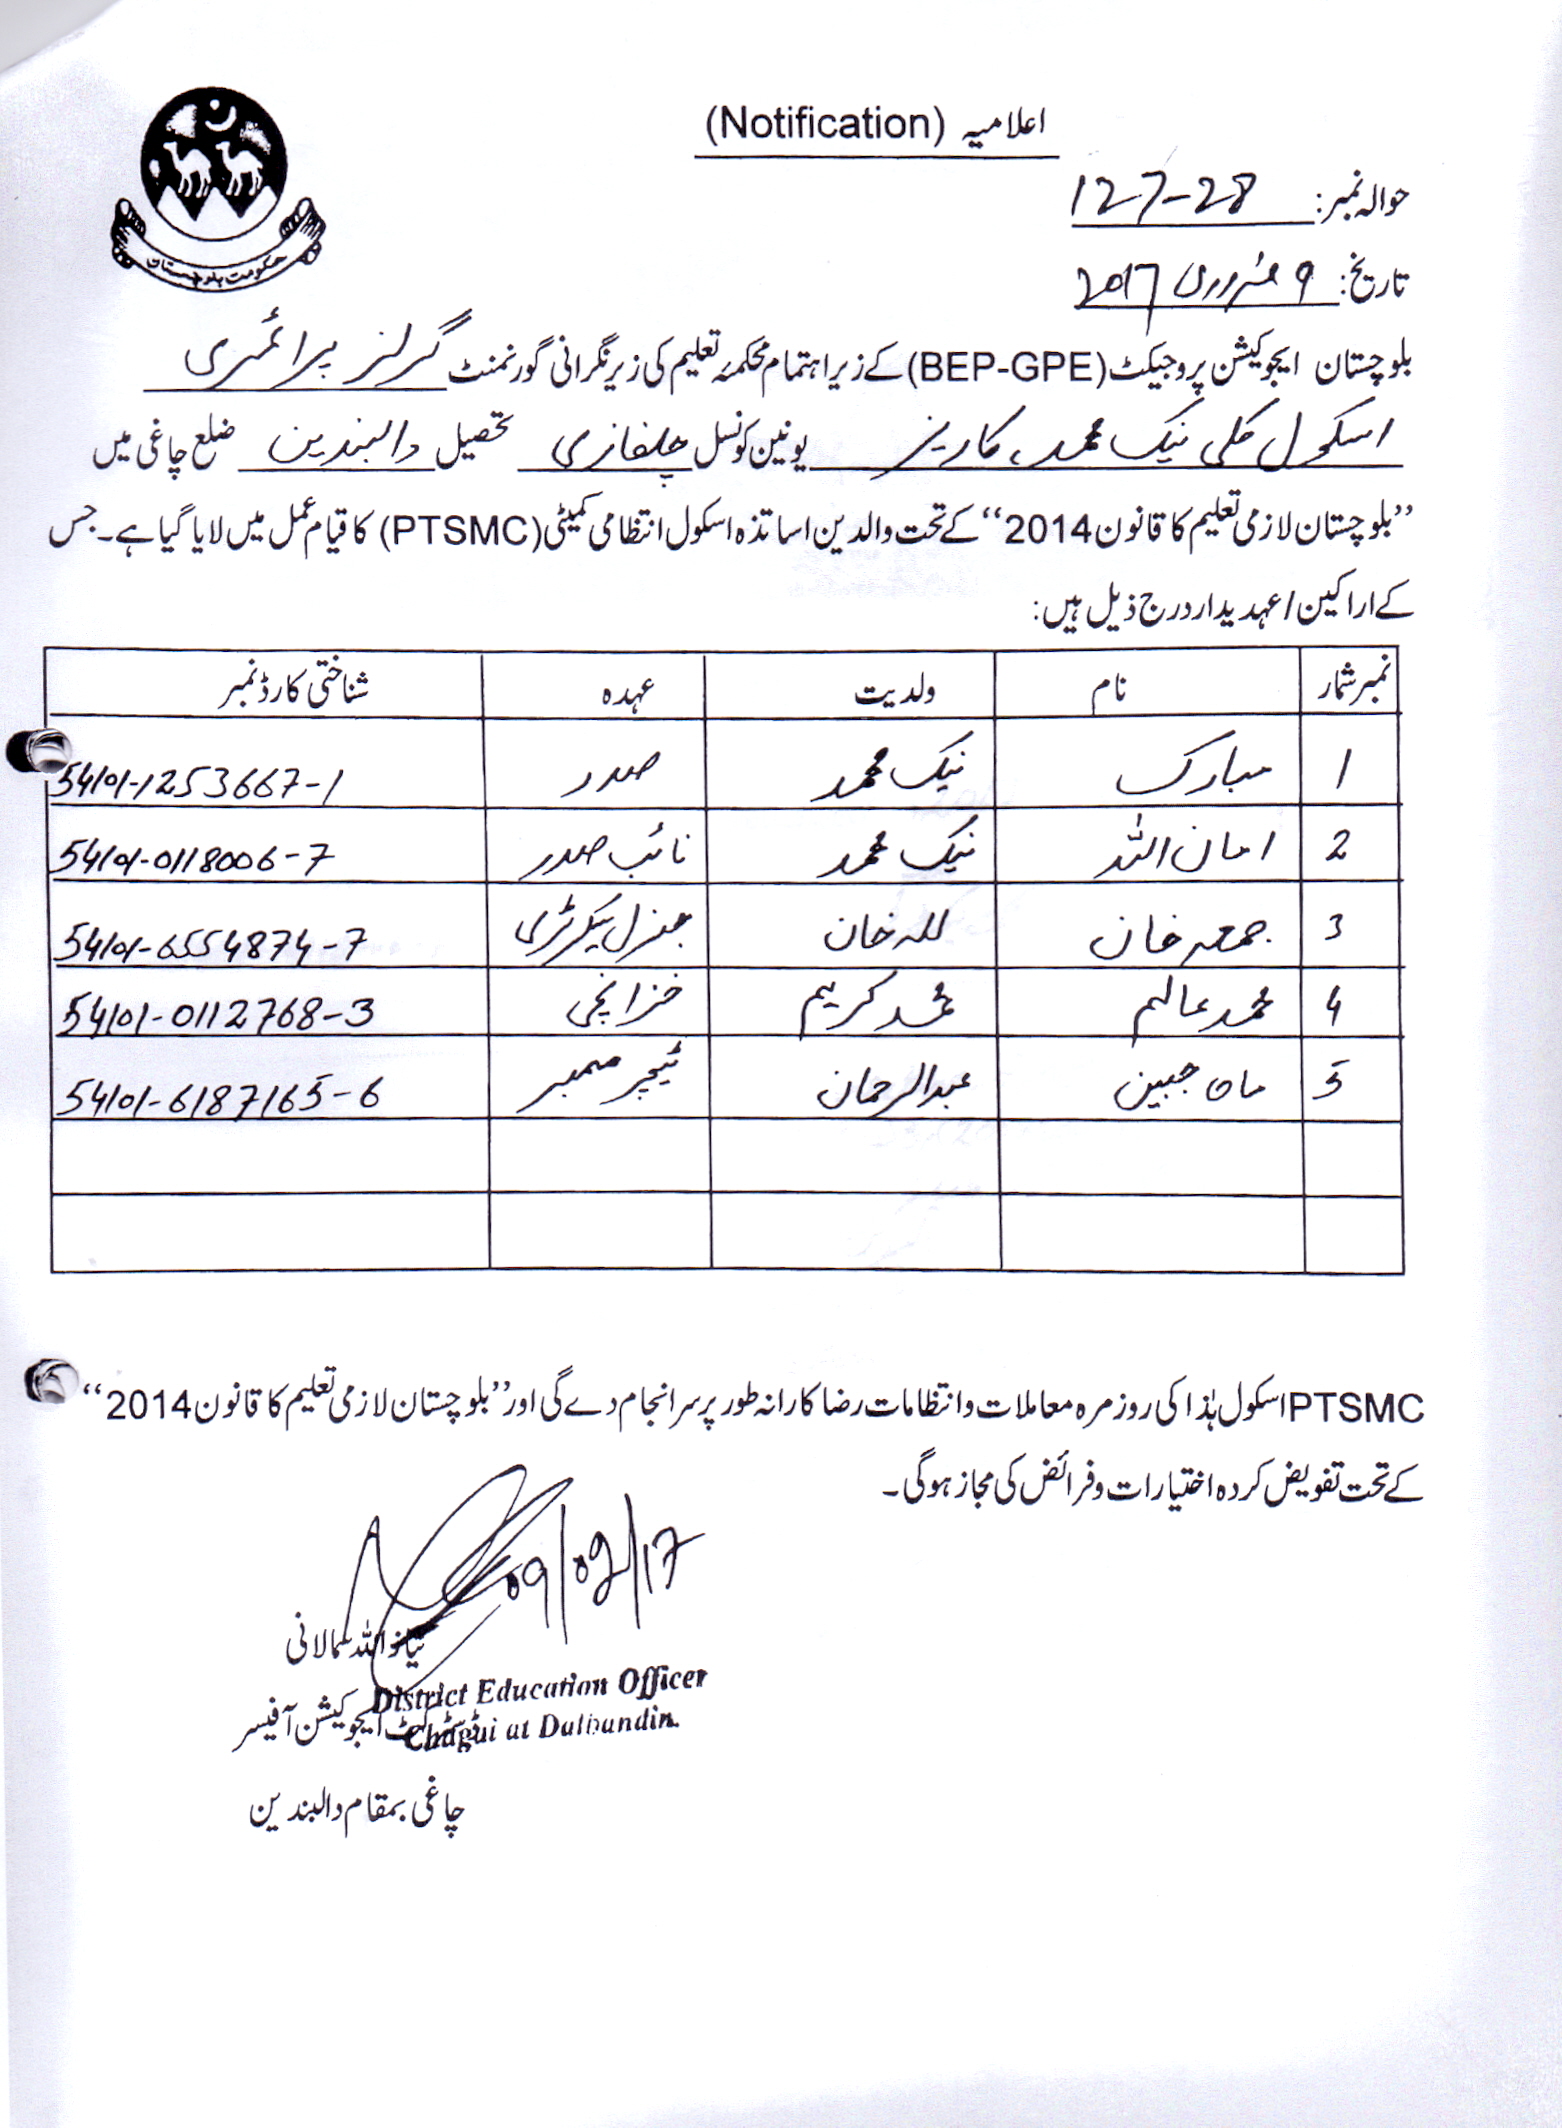 حکومت بلوچستان
اعلامیہ (Notification)
حوالہ نمبر: 127-28
تاریخ: 9 فروری 2017
بلوچستان ایجوکیشن پروجیکٹ (BEP-GPE) کے زیر اہتمام محکمۂ تعلیم کی زیر نگرانی گورنمنٹ گرلز پرائمری
اسکول کلی نیک محمد کاریز یونین کونسل چلغازی تحصیل دالبندین ضلع چاغی میں
”بلوچستان لازمی تعلیم کا قانون 2014“ کے تحت والدین اساتذہ اسکول انتظامی کمیٹی (PTSMC) کا قیام عمل میں لایا گیا ہے۔ جس
کے اراکین / عہدیدار درج ذیل ہیں:
نمبر شمار نام ولدیت عہدہ شناختی کارڈ نمبر
1 مبارک نیک محمد صدر 54101-1253667-1
2 امان اللہ نیک محمد نائب صدر 54101-0118006-7
3 جمعہ خان للہ خان جنرل سیکرٹری 54101-6554874-7
4 محمد عالم محمد کریم خزانچی 54101-0112768-3
5 ماہ جبین عبدالرحمان ٹیچر ممبر 54101-6187165-6
PTSMC اسکول ہٰذا کی روز مرہ معاملات و انتظامات رضا کارانہ طور پر سر انجام دے گی اور ”بلوچستان لازمی تعلیم کا قانون 2014“
کے تحت تفویض کردہ اختیارات و فرائض کی مجاز ہوگی۔
09/02/17
اللہ
District Education Officer
ڈسٹرکٹ ایجوکیشن آفیسر
Chagai at Dalbandin.
چاغی بمقام دالبندین